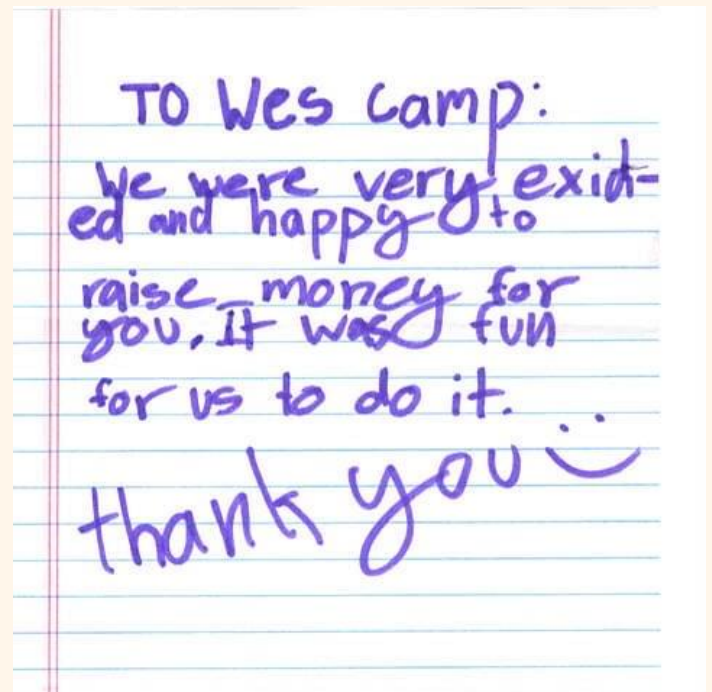 TO Wes Camp:
We were very exid-
ed and happy to
raise money for
you. It was fun
for us to do it.
thank you